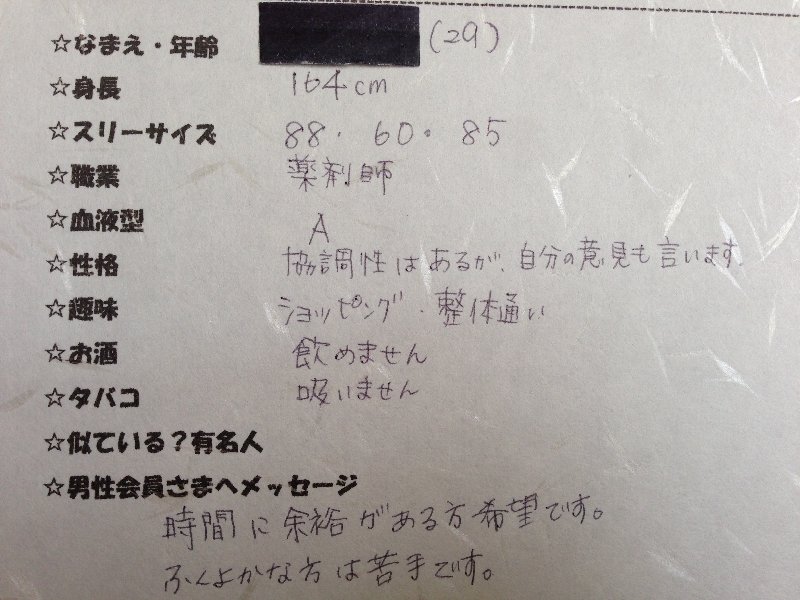 ☆なまえ・年齢 (29)
☆身長 164cm
☆スリーサイズ 88. 60. 85
☆職業 薬剤師
☆血液型 A
☆性格 協調性はあるが、自分の意見も言います。
☆趣味 ショッピング・整体通い
☆お酒 飲めません
☆タバコ 吸いません
☆似ている？有名人
☆男性会員さまへメッセージ
時間に余裕がある方希望です。
ふくよかな方は苦手です。